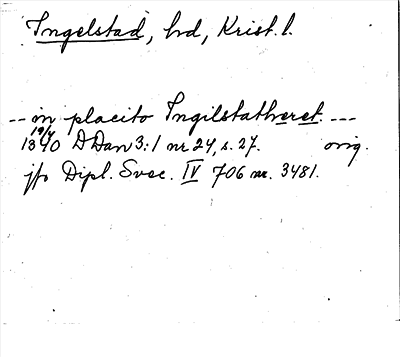 Ingelstad, hd, Krist. l.
-- in placito Ingilstathæret ---
19/4
1340 DDan 3:1 nr 24, s. 27. orig.
jfr Dipl. Svec. IV 706 nr. 3481.